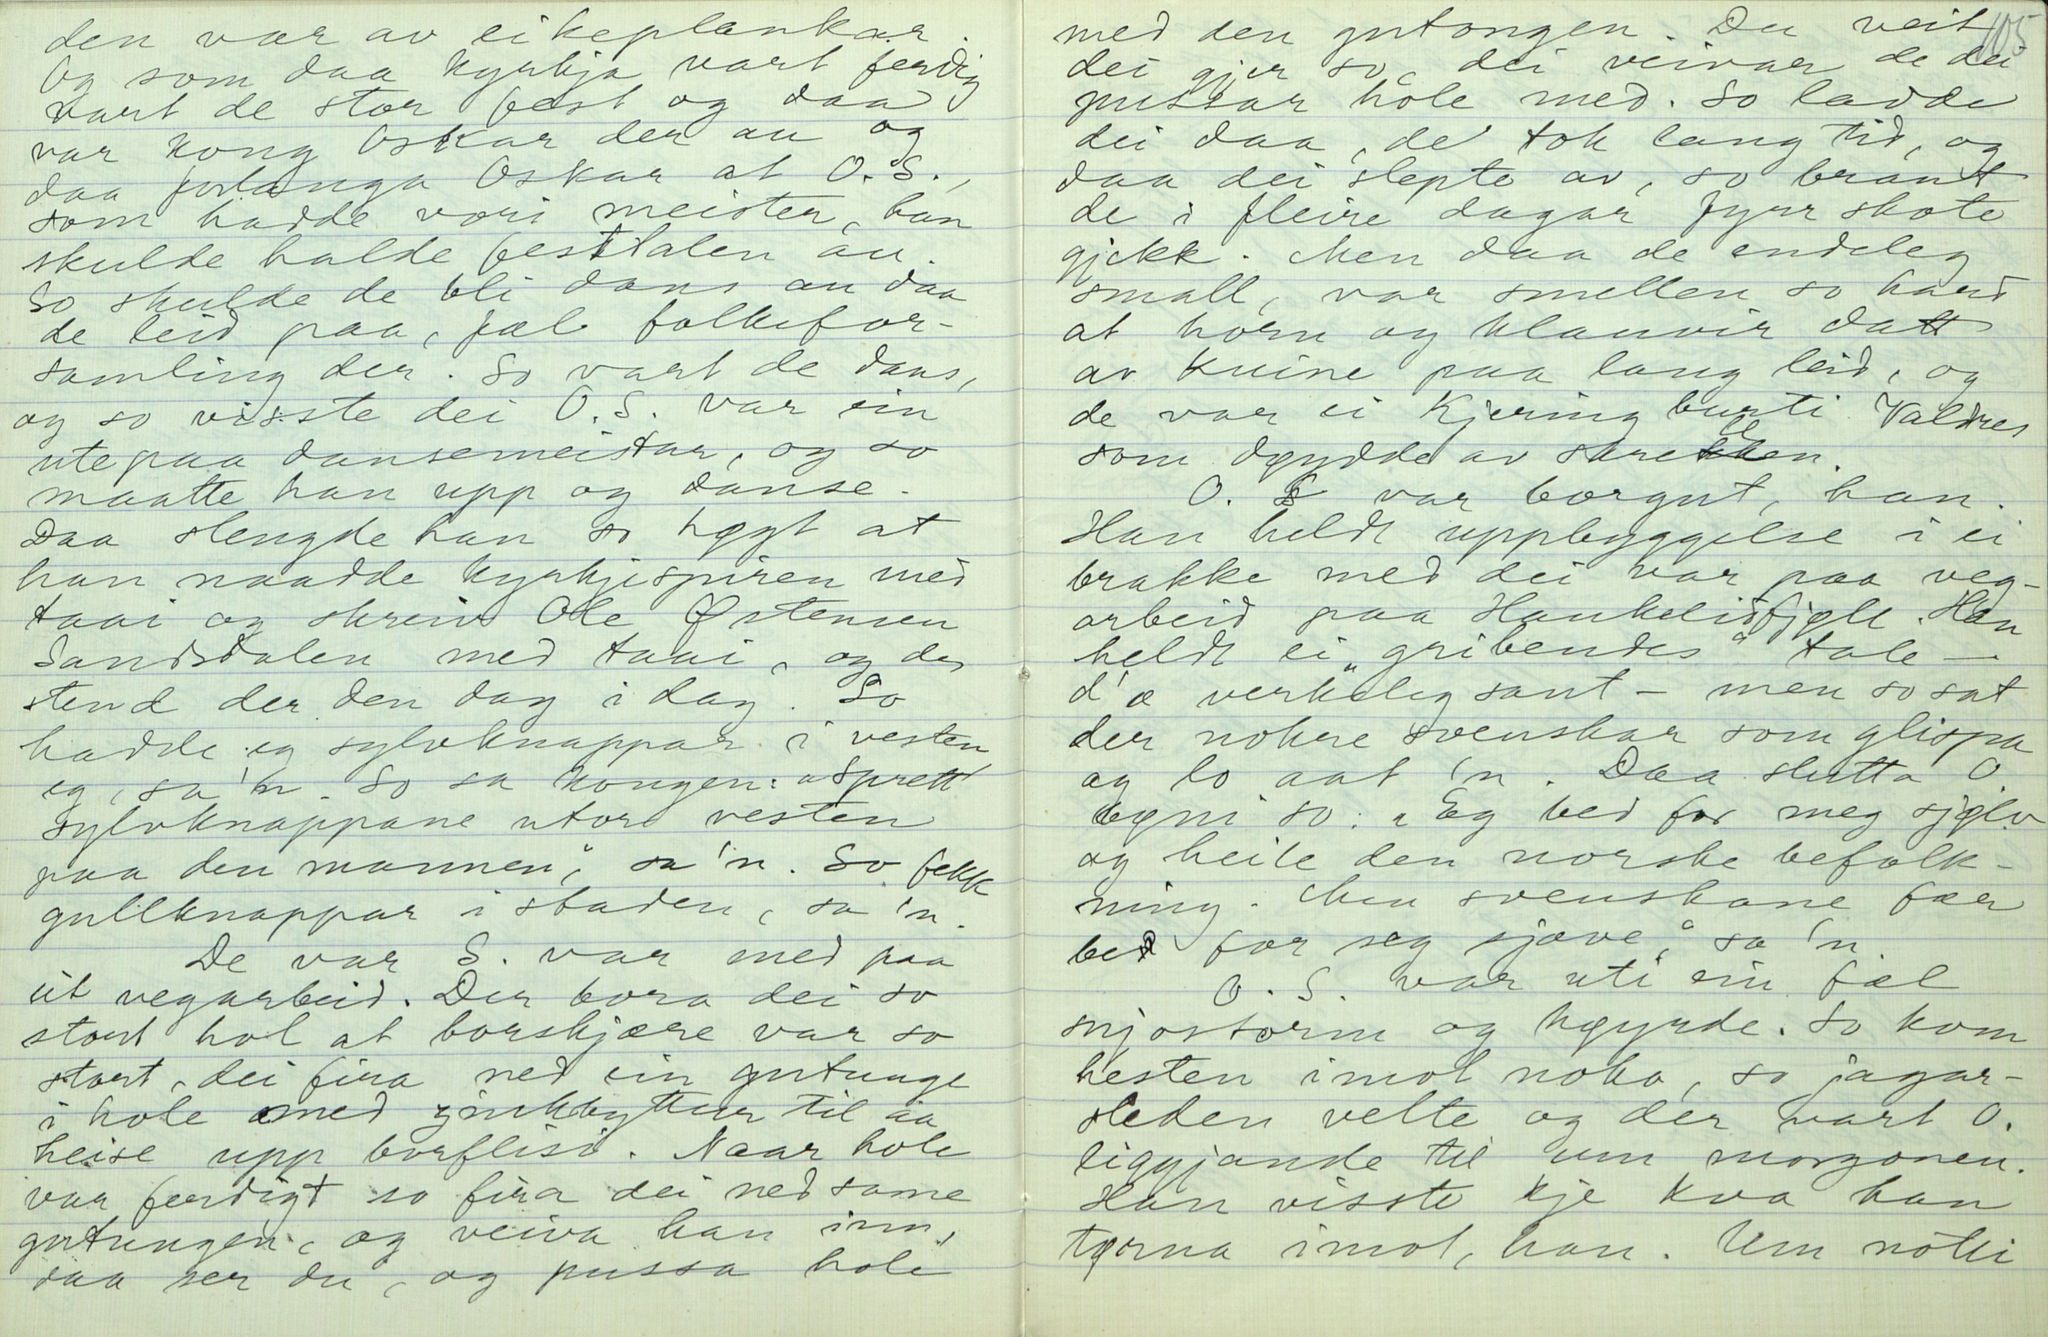 den var av eikeplankar.
Og som daa kyrkja vart ferdig
vart de stor fest og daa
var kong Oskar der au og
daa forlanga Oskar at O. S.,
som hadde vori meister, han
skulde halde festtalen au.
So skulde de bli dans au daa
de leid paa, fæl folkefor-
samling der. So vart de dans,
og so visste dei O. S. var ein
utepaa dansemeistar, og so
maatte han upp og danse.
Daa slengde han so høgt at
han naadde kyrkjespiren med
taai og skreiv Ole Østensen
Sandsdalen med taai, og de
stend der den dag i dag. So
hadde eg sylvknappar i vesten,
eg, sa'n. So sa kongen: "Sprett
sylvknappane utor vesten
paa den mannen", sa'n. So fekk
gullknappar i staden, sa'n.
De var S. var med paa
eit vegarbeid. Der bora dei so
stort hol at borskjære var so
stort, dei fira ned ein gutunge
i hole med zinkbyttur til aa
heise upp borflisi. Naar hole
var ferdigt so fira dei ned same
gutungen, og veiva han inn,
daa ser du, og pussa hole
105
med den gutongen. Du veit
dei gjer so, dei veivar de dei
pussar hole med. So ladde
dei daa, de tok lang tid, og
daa dei slepte av, so brant
de i fleire dagar fyrr skote
gjekk. Men daa de endeleg
small, var smellen so hard
at horn og klauvir datt
av kuine paa lang leid, og
de var ei kjering burti Valdres
som døydde av skrekken.
O. S var borgut, han.
Han heldt uppbyggelse i ei
brakke med dei var paa veg-
arbeid paa Haukelidfjell. Han
heldt ei "gribendes" tale -
d'æ verkeleg sant - men so sat
der nokre svenskar som glispa
og lo aat 'n. Daa slutta O
bøni so: "Eg bed for meg sjølv
og heile den norske befolk-
ning. Men svenskane fær
bed for seg sjæve", sa'n.
O. S. var uti ein fæl
snjostorm og køyrde. So kom
hesten imot noko, so jagar-
sleden velte og der vart O.
liggjande til um morgonen.
Han visste kje kva han
tørna imot, han. Um nótti